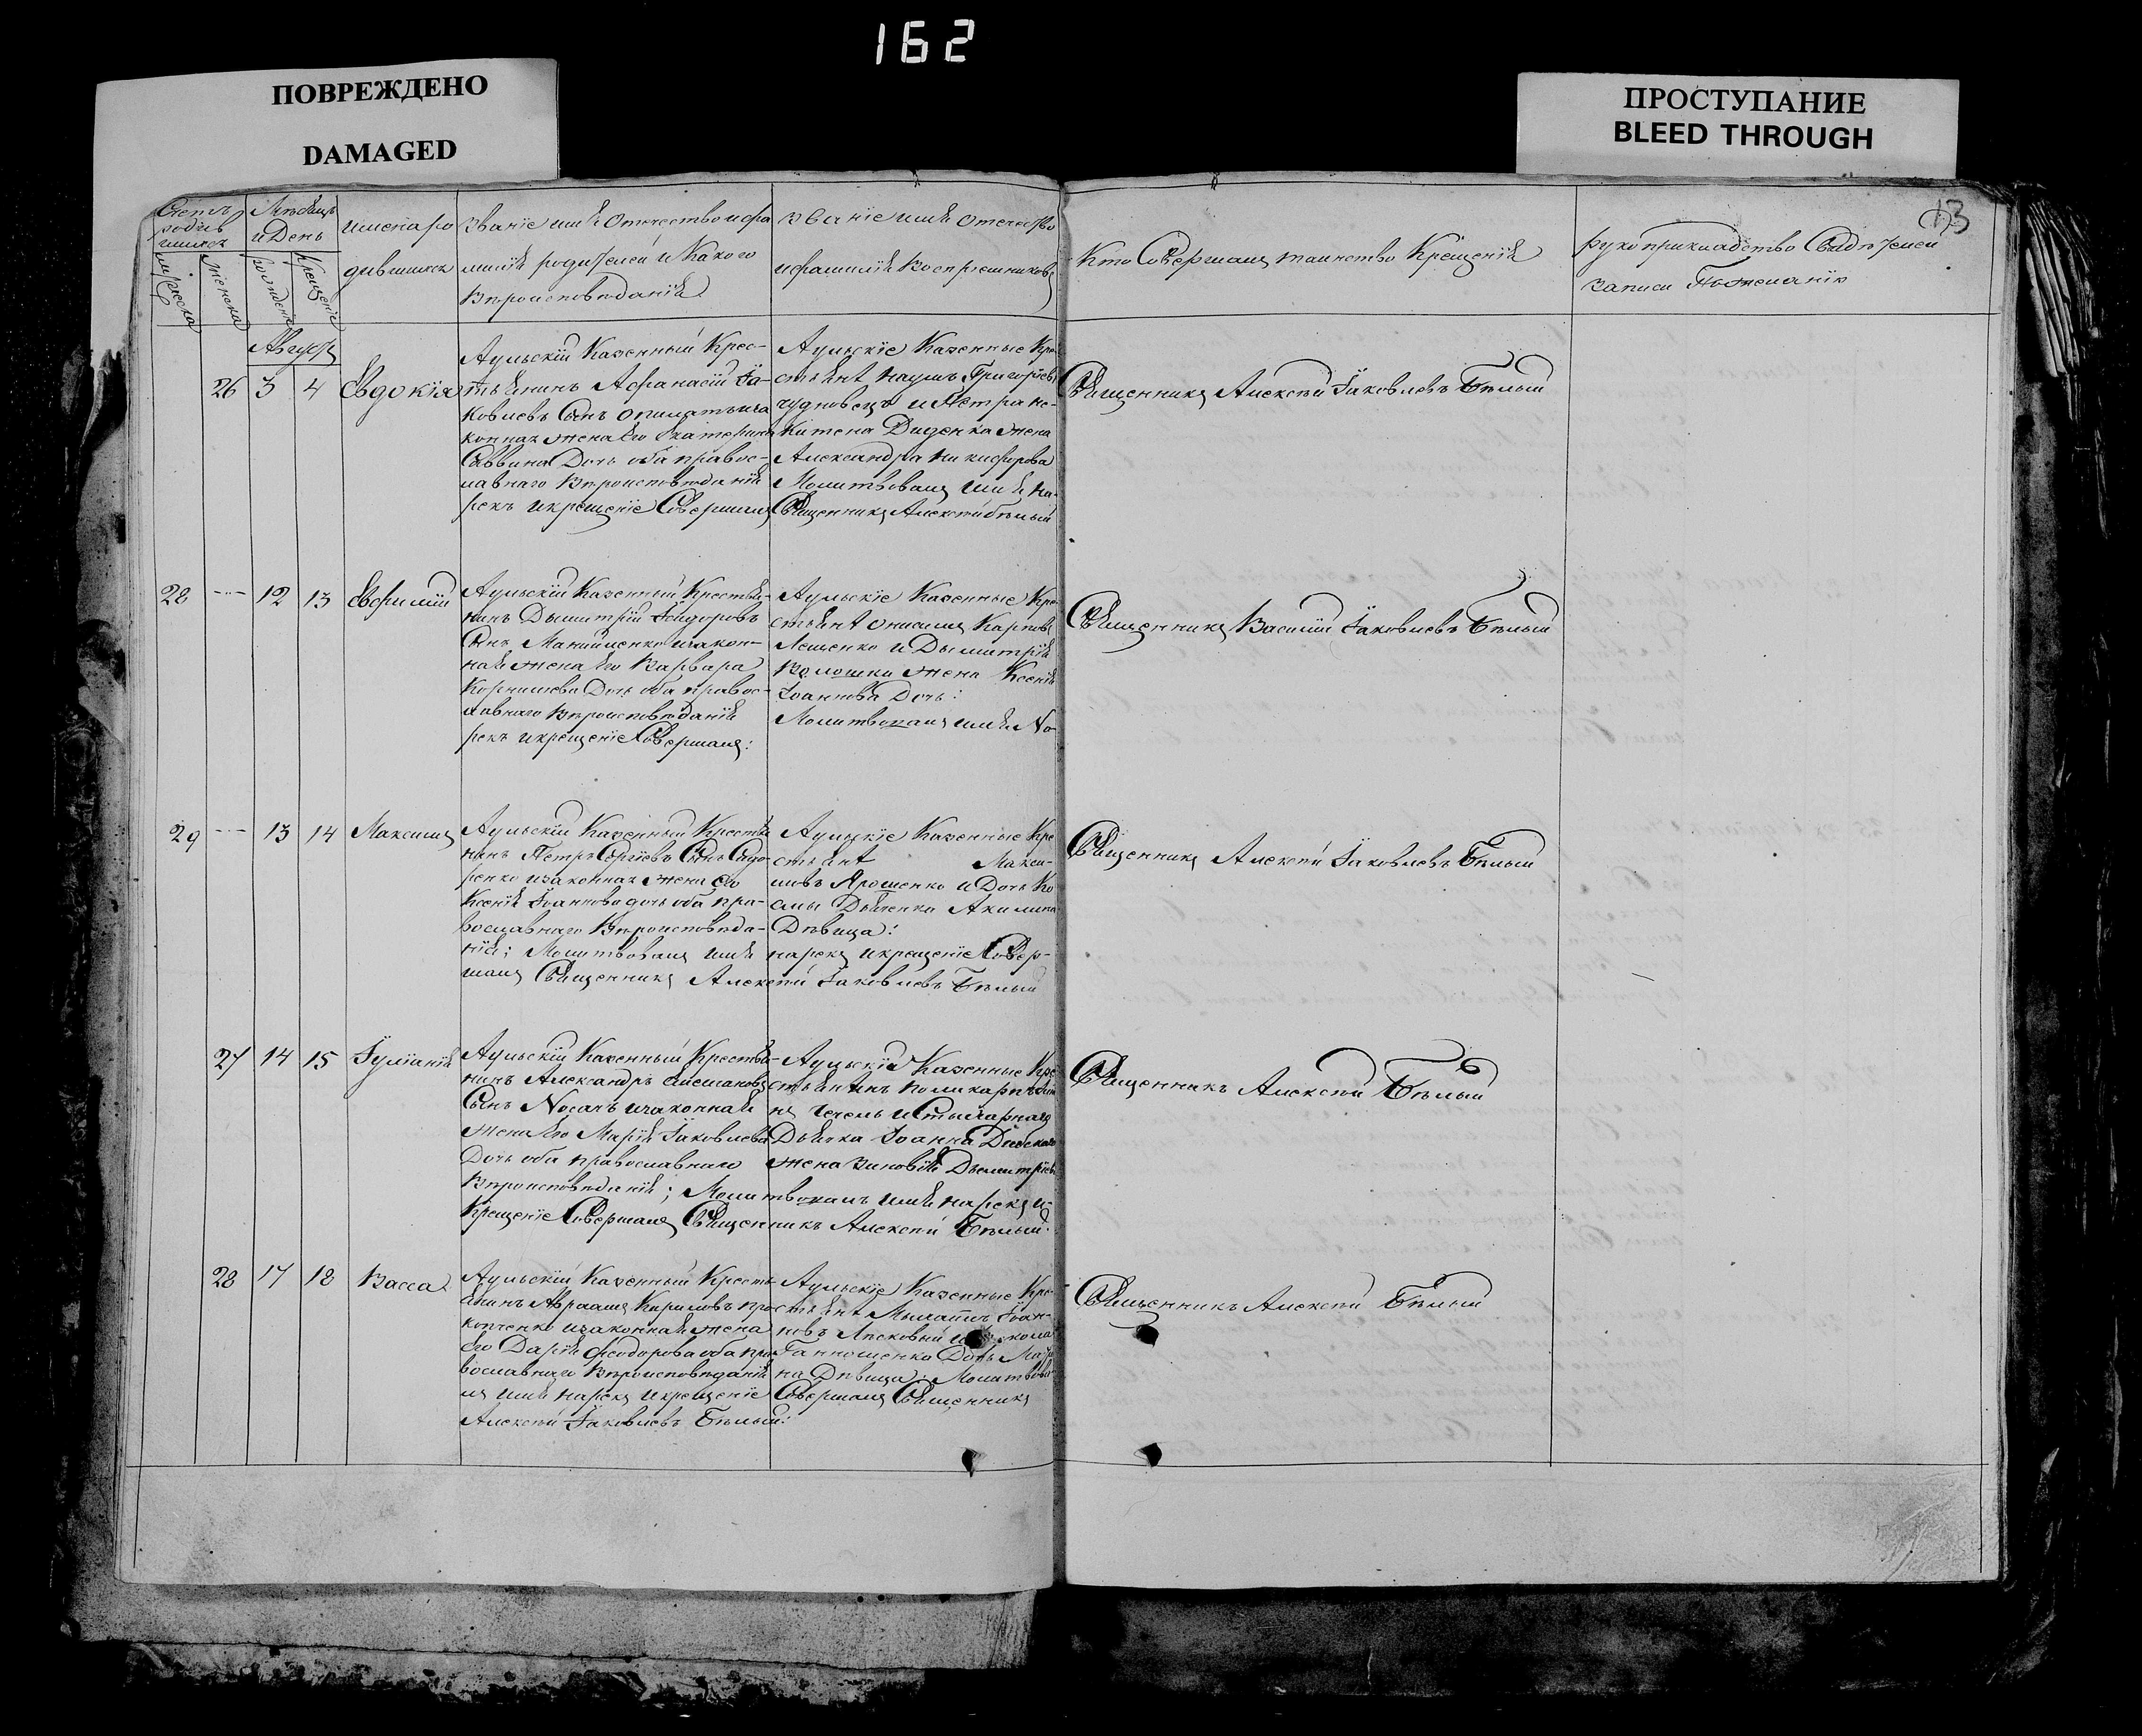 162
ПОВРЕЖДЕНО
DAMAGED
ПРОСТУПАНИЕ
BLEED THROUGH
13
Счетъ родив
шихся
мужеска
женска
Мѣсяцъ
и День
рожденія
крещенія
имена ро
дившихся
Званіе имя отечество и фа
милія родителей и Какого
Вѣроисповѣданія
Званіе имя отечество
и фамилія Воспріемниковъ
Кто Совершалъ таинство Крещенія
рукоприкладство Свидѣтелей
записи По желанію
Августъ
26 3 4 Евдокія
Аульскій Казенный Крес-
тьянинъ Афанасій Іа-
ковлевъ Сынъ
жена его Екатерина
Саввина Дочь оба правос-
лавнаго Вѣроисповѣданія
рекъ и крещеніе Совершилъ
Аульскіе Казенные Кре
стьянѣ Наумъ Григорьевъ
чудновецъ и Петра
Диденка жена
Александра Никифорова
Молитвовалъ имя на-
Священникъ Алексѣй Бѣлый
Священникъ Алексѣй Іаковлевъ Бѣлый
28 --- 12 13 Евфимій
Аульскій Казенный Крестья-
нинъ Дымитрій Ісидоровъ
Сынъ Манойленко изакон-
ная жена его Варвара
Корнилева Дочь оба правос-
лавнаго Вѣроисповѣданія
рекъ и крещеніе Совершалъ:
Аульскіе Казенные Кре
стьянѣ Карповъ
Лешенко и Дымитрія
Волошки жена Ксенія
Іоаннова Дочь:
Молитвовалъ имя На
Священникъ Василій Іаковлевъ Бѣлый
29 --- 13 14 Максимъ
Аульскій Казенный Крестья
нинъ Петръ Сергіевъ Сынъ Сидо-
ренко изаконная жена его
Ксенія Іоаннова дочь оба пра-
вославнаго Вѣроисповѣда-
нія; Молитвовалъ имя
шалъ Священникъ
Аульскіе Казенные Кре
стьянѣ Макси-
мовъ Ярошенко и Дочь Ко
Акилина
Дѣвица:
нарекъ и крещеніе Совер-
Алексѣй Іаковлевъ Бѣлый
Священникъ Алексѣй Іаковлевъ Бѣлый
27 14 15 Іуліанія
Аульскій Казенный Крестья-
нинъ Александръ
Сынъ Носачъ изаконная
жена его Марія Іаковлева
Дочь оба православнаго
Вѣроисповѣданія; Молитвовалъ
крещеніе Совершалъ Священникъ
Аульскіе Казенные Кре
стьянинъ Поликарпъ
Чечель и
Дьячка Іоанна
жена Зиновія Дымитріева
имя нарекъ и
Алексѣй Бѣлый:
Священникъ Алексѣй Бѣлый
28 17 18 Васса
Аульскій Казенный Кресть
янинъ Авраамъ Кириловъ Про
копченко изаконная жена
его Дарія Феодорова оба пра
вославнаго Вѣроисповѣданія
лъ имя нарекъ и крещеніе
Алексѣй Іаковлевъ Бѣлый:
Аульскіе Казенные Кре-
стьянѣ Іоан-
новъ Лѣсковый
Ганношенко Дочь
на Дѣвица: Молитвова
Совершалъ Священникъ
Священникъ Алексѣй Бѣлый